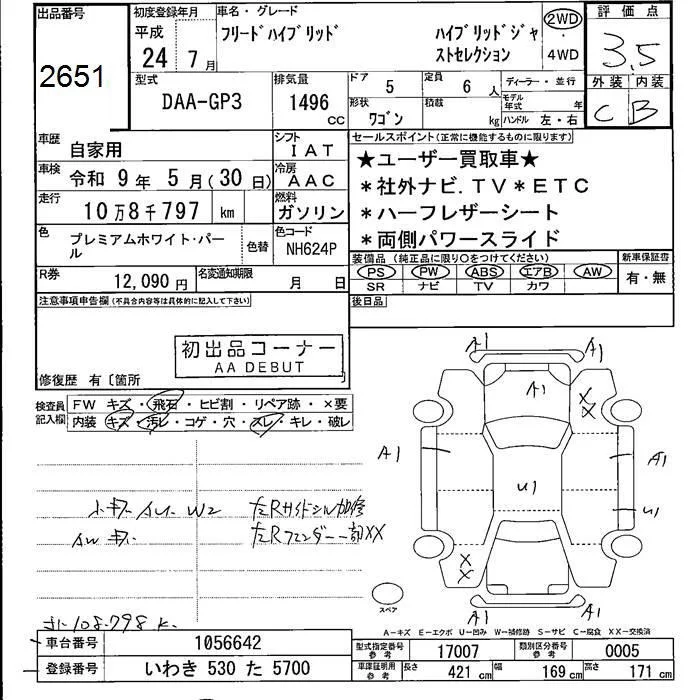 出品番号
2651
初度登録年月
平成
24年 7月
車名・グレード
フリードハイブリッド ハイブリッドジャ
ストセレクション
2WD
・
4WD
評価点
3.5
外装 内装
C B
型式
DAA-GP3
排気量
1496 cc
ドア 5
定員 6 人
ディーラー・並行
モデル年式 年
形状 ワゴン
積載 kg
ハンドル 左・右
車歴 自家用
シフト IAT
車検 令和 9年 5月(30日)
冷房 AAC
走行 10万8千797 km
燃料 ガソリン
色 プレミアムホワイト・パール
色替
色コード NH624P
R券 12,090円
名変通知期限 月 日
セールスポイント(正常に機能するものに限ります)
★ユーザー買取車★
*社外ナビ.TV*ETC
*ハーフレザーシート
*両側パワースライド
装備品 (純正品に限り○をつけてください)
PS PW ABS エアB AW
SR ナビ TV カワ
新車保証書
有・無
後日品
注意事項申告欄(不具合内容等は具体的に記入して下さい)
初出品コーナー
AA DEBUT
修復歴 有〔箇所 〕
検査員記入欄
FW キズ・飛石・ヒビ割・リペア跡・×要
内装 キズ・汚レ・コゲ・穴・スレ・キレ・破レ
小キズ AU W2 左Rサイドシル加修
AWキズ 左Rフェンダー一部XX
108.798K
A1 A1
A1
X
X
A1
A1
U1
U1
X
X
A1 A1
スペア
A-キズ E-エクボ U-凹み W-補修跡 S-サビ C-腐食 XX-交換済
車台番号 1056642
登録番号 いわき 530 た 5700
型式指定番号 参考 17007
類別区分番号 参考 0005
車庫証明用 参考 長さ 421cm 幅 169cm 高さ 171cm